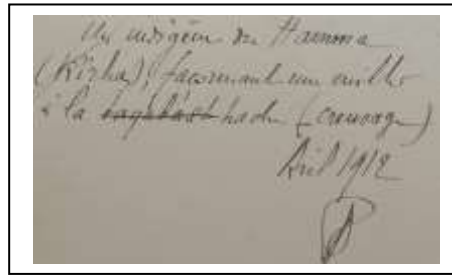 Un indigène de Hamma
(Kisha), façonnant une
à la ~~tagelast~~ hache (creusage)
Avril 1912